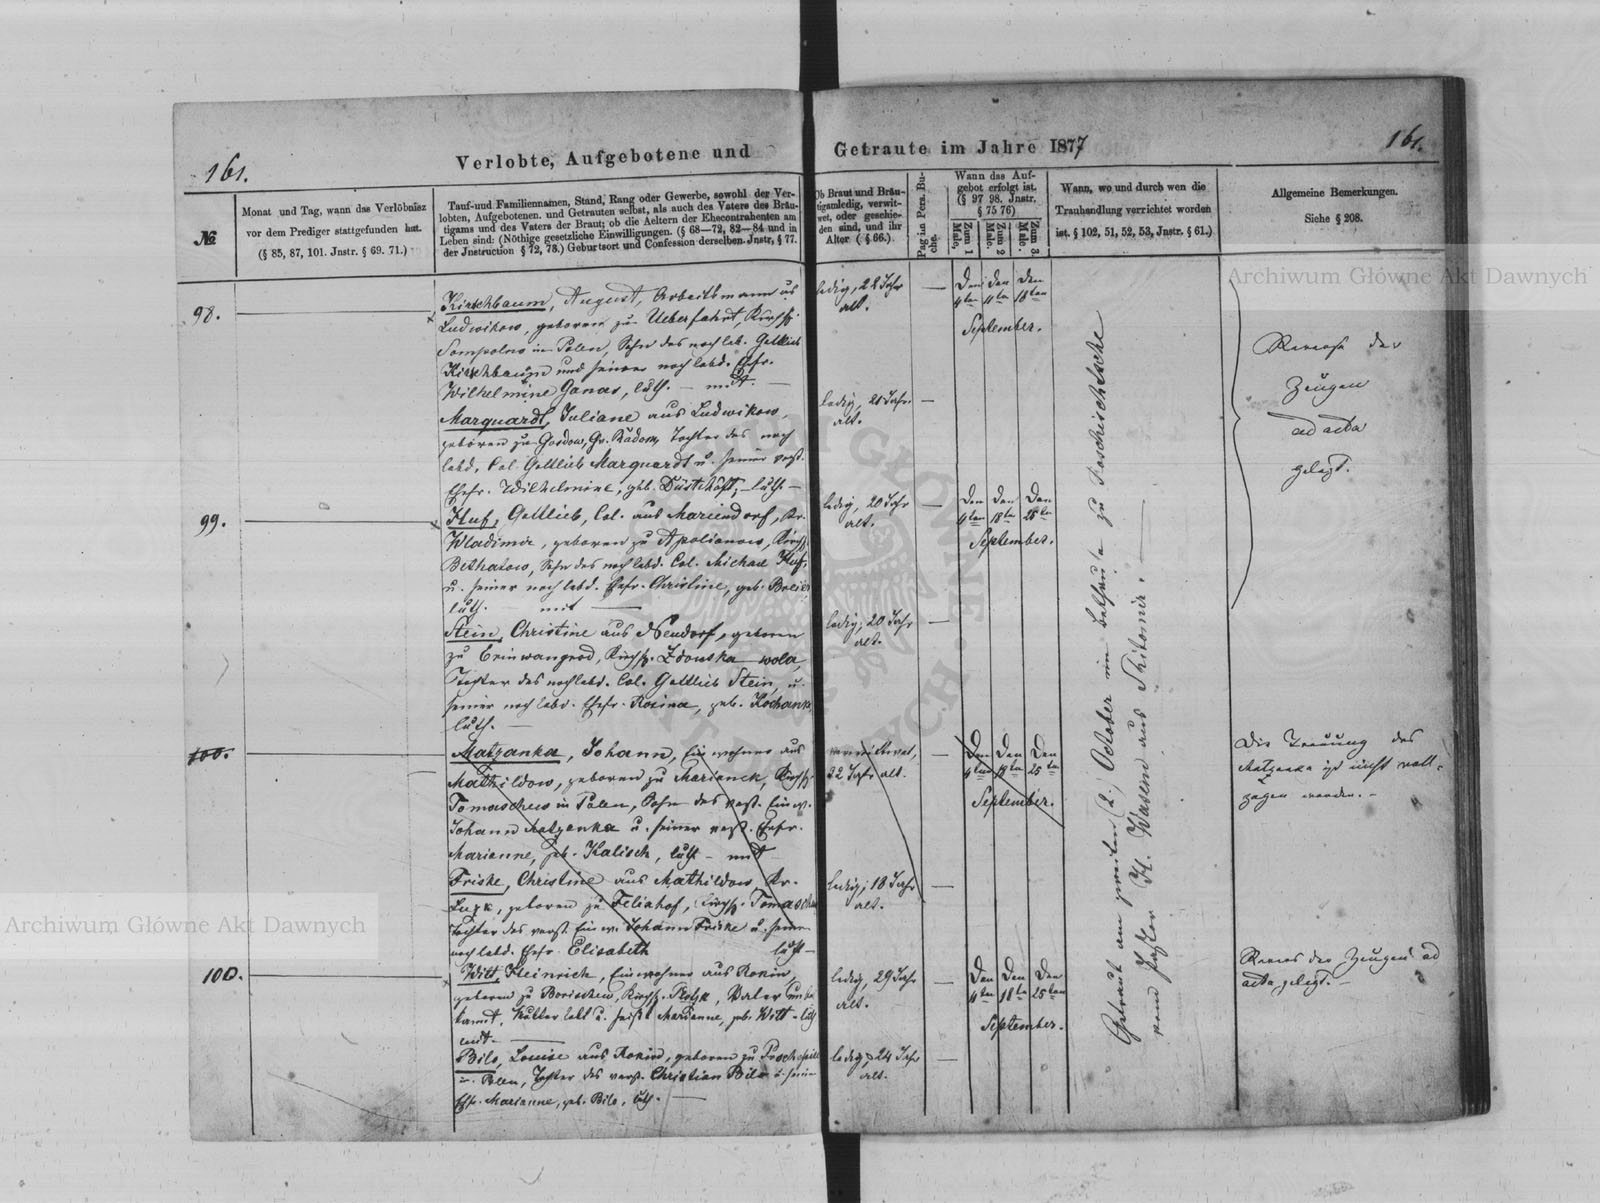 161.
Verlobte, Aufgebotene und
Getraute im Jahre 1877
161.
№
Monat und Tag, wann das Verlöbniss
vor dem Prediger stattgefunden hat.
(§ 85, 87, 101. Jnstr. § 69. 71.)
Tauf-und Familiennamen, Stand, Rang oder Gewerbe, sowohl der Ver-
lobten, Aufgebotenen. und Getrauten selbst, als auch des Vaters des Bräu-
tigams und des Vaters der Braut; ob die Aeltern der Ehecontrahenten am
Leben sind: (Nöthige gesetzliche Einwilligungen. (§ 68—72, 82—84 und in
der Jnstruction § 72, 78.) Geburtsort und Confession derselben. Jnstr, § 77.
Ob Braut und Bräu-
tigam ledig, verwit-
wet, oder geschie-
den sind, und ihr
Alter ( § 66.)
Pag in Pers. Bu-
che.
Wann das Auf-
gebot erfolgt ist.
(§ 97 98. Jnstr.
§ 75 76)
Zum 1
Male,
Zum 2
Male.
Zum 3.
Male.
Wann, wo und durch wen die
Trauhandlung verrichtet worden
ist. § 102, 51, 52, 53, Jnstr. § 61.)
Allgemeine Bemerkungen.
Siehe § 208.
98.
Kirschbaum, August, Arbeitsmann aus
Ludwikow, geboren zu Ueberfahrt, Kirchsp.
Sompolno in Polen, Sohn des noch leb. Gottlieb
Kirschbaum und seiner noch lebd. Ehefr.
Wilhelmine Ganas, luth. — mit —
Marquardt, Juliane aus Ludwikow,
geboren zu Gosdow, Gv. Radom, Tochter des noch
lebd. Col. Gottlieb Marquardt u. seiner verst.
Ehefr. Wilhelmine, geb. Düsterhöft, — luth —
ledig, 22 Jahr
alt.
ledig, 21 Jahr
alt.
Den Den Den
4ten 11ten 18ten
September.
99.
Huf, Gottlieb, Col. aus Mariendorf, Kr.
Wladimir, geboren zu Apolianow, Kirchsp.
Sohn des noch lebd. Col. Michael Huf,
u. seiner noch lebd. Ehefr. Christine, geb.
luth. — mit —
Stein, Christine aus Neudorf, geboren
zu Kirchsp. Zdonska wola,
Tochter des noch lebd. Col. Gottlieb Stein, u.
seiner noch lebd. Ehefr. Rosina, geb.
luth. —
ledig, 20 Jahr
alt.
ledig, 20 Jahr
alt.
Den Den Den
4ten 18ten 25ten
September.
100.
Matzanka, Johann, Einwohner aus
Mathildow, geboren zu Marianek, Kirchsp.
Tomaschew in Polen, Sohn des verst. Einw.
Johann Matzanka u. seiner verst. Ehefr.
Marianne, geb. Kalisch, luth — mit —
Friske, Christine aus Mathildow, Kr.
Luzk, geboren zu Feliahof, Kirchsp. Tomaschew
Tochter des verst. Einw. Johann Friske u. seiner
noch lebd. Ehefr. Elisabeth luth —
verwittwet,
22 Jahr alt.
ledig, 18 Jahr
alt.
Den Den Den
4ten 18ten 25ten
September.
Die Trauung des
Matzanka ist nicht voll-
zogen worden. —
100.
Witt, Heinrich, Einwohner aus Rokin,
geboren zu Borischew, Kirchsp. Plotzk, Vater unbe-
kannt, Mutter lebt u. heißt Marianne, geb. Witt - luth
mit —
Bilo, Louise aus Rokin, geboren zu
in Polen, Tochter des verst. Christian Bilo u. seiner
Ehfr. Marianne, geb. Bilo, luth. —
ledig, 29 Jahr
alt.
ledig, 24 Jahr
alt.
Den Den Den
4ten 18ten 25ten
September.
Getraut am zweiten (2.) October im Bethause zu Roschischtsche
vom Pastor H. Wasem aus Shitomir. —
Reverse der
Zeugen
ad acta
gelegt.
Revers der Zeugen ad
acta gelegt. —
Archiwum Główne Akt Dawnych
Archiwum Główne Akt Dawnych